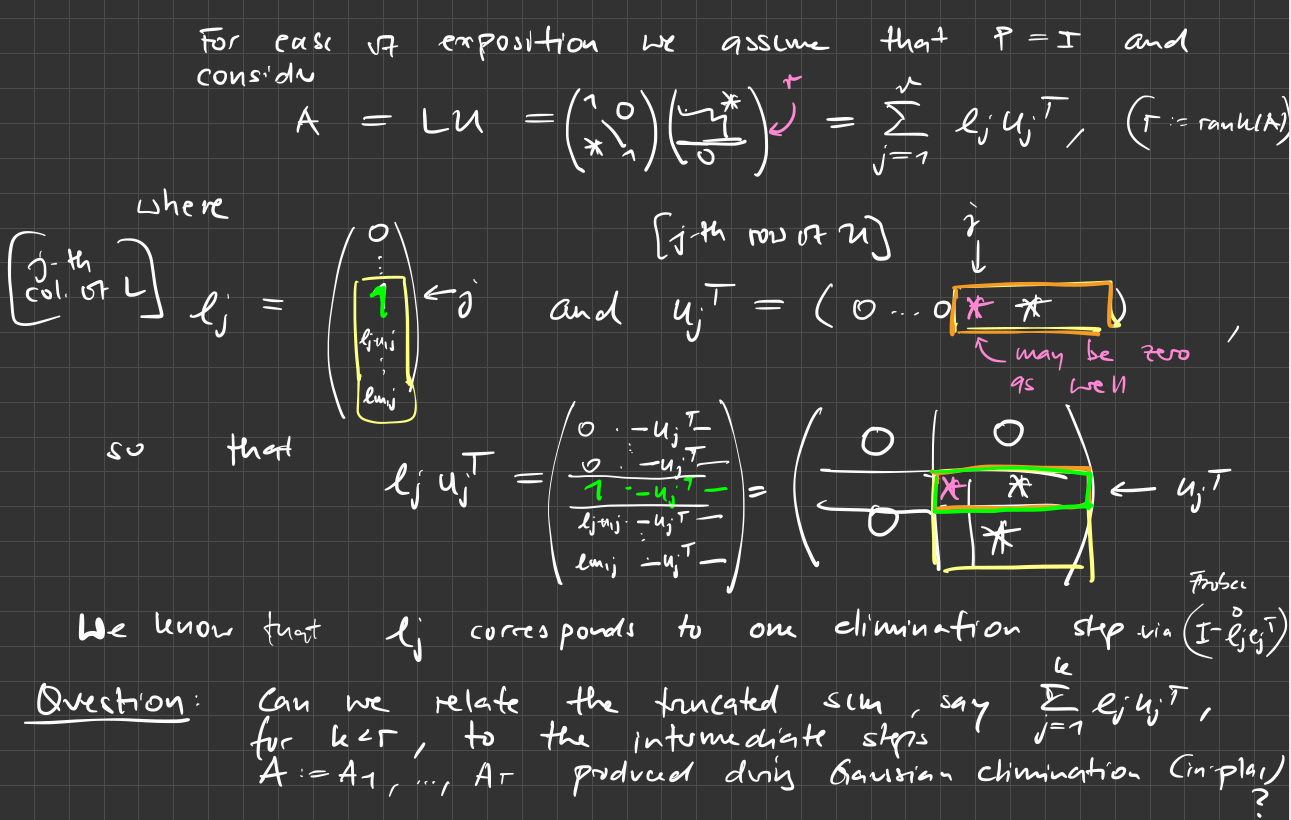 For ease of exposition we assume that P = I and
consider
A = LU = (1 0 * 1) (* 0) r = ∑_{j=1}^{r} ℓ_j u_j^T, (r := rank(A))
where
[j-th col. of L] ℓ_j = (0 ⋮ 1 ℓ_{j+1,j} ⋮ ℓ_{m,j}) ← j and [j-th row of U] u_j^T = (0 ... 0 * *), j ↓
may be zero
as well
so that ℓ_j u_j^T = (0 · -u_j^T- ⋮ 0 · -u_j^T- 1 · -u_j^T- ℓ_{j+1,j} · -u_j^T- ⋮ ℓ_{m,j} -u_j^T-) = (0 0 * * 0 *) ← u_j^T
Froben
We know that ℓ_j corresponds to one elimination step via (I - ℓ_j e_j^T)
Question: Can we relate the truncated sum, say ∑_{j=1}^{k} ℓ_j u_j^T,
for k<r, to the intermediate steps
A := A_1, ..., A_r produced during Gaussian elimination (in-plac)
?